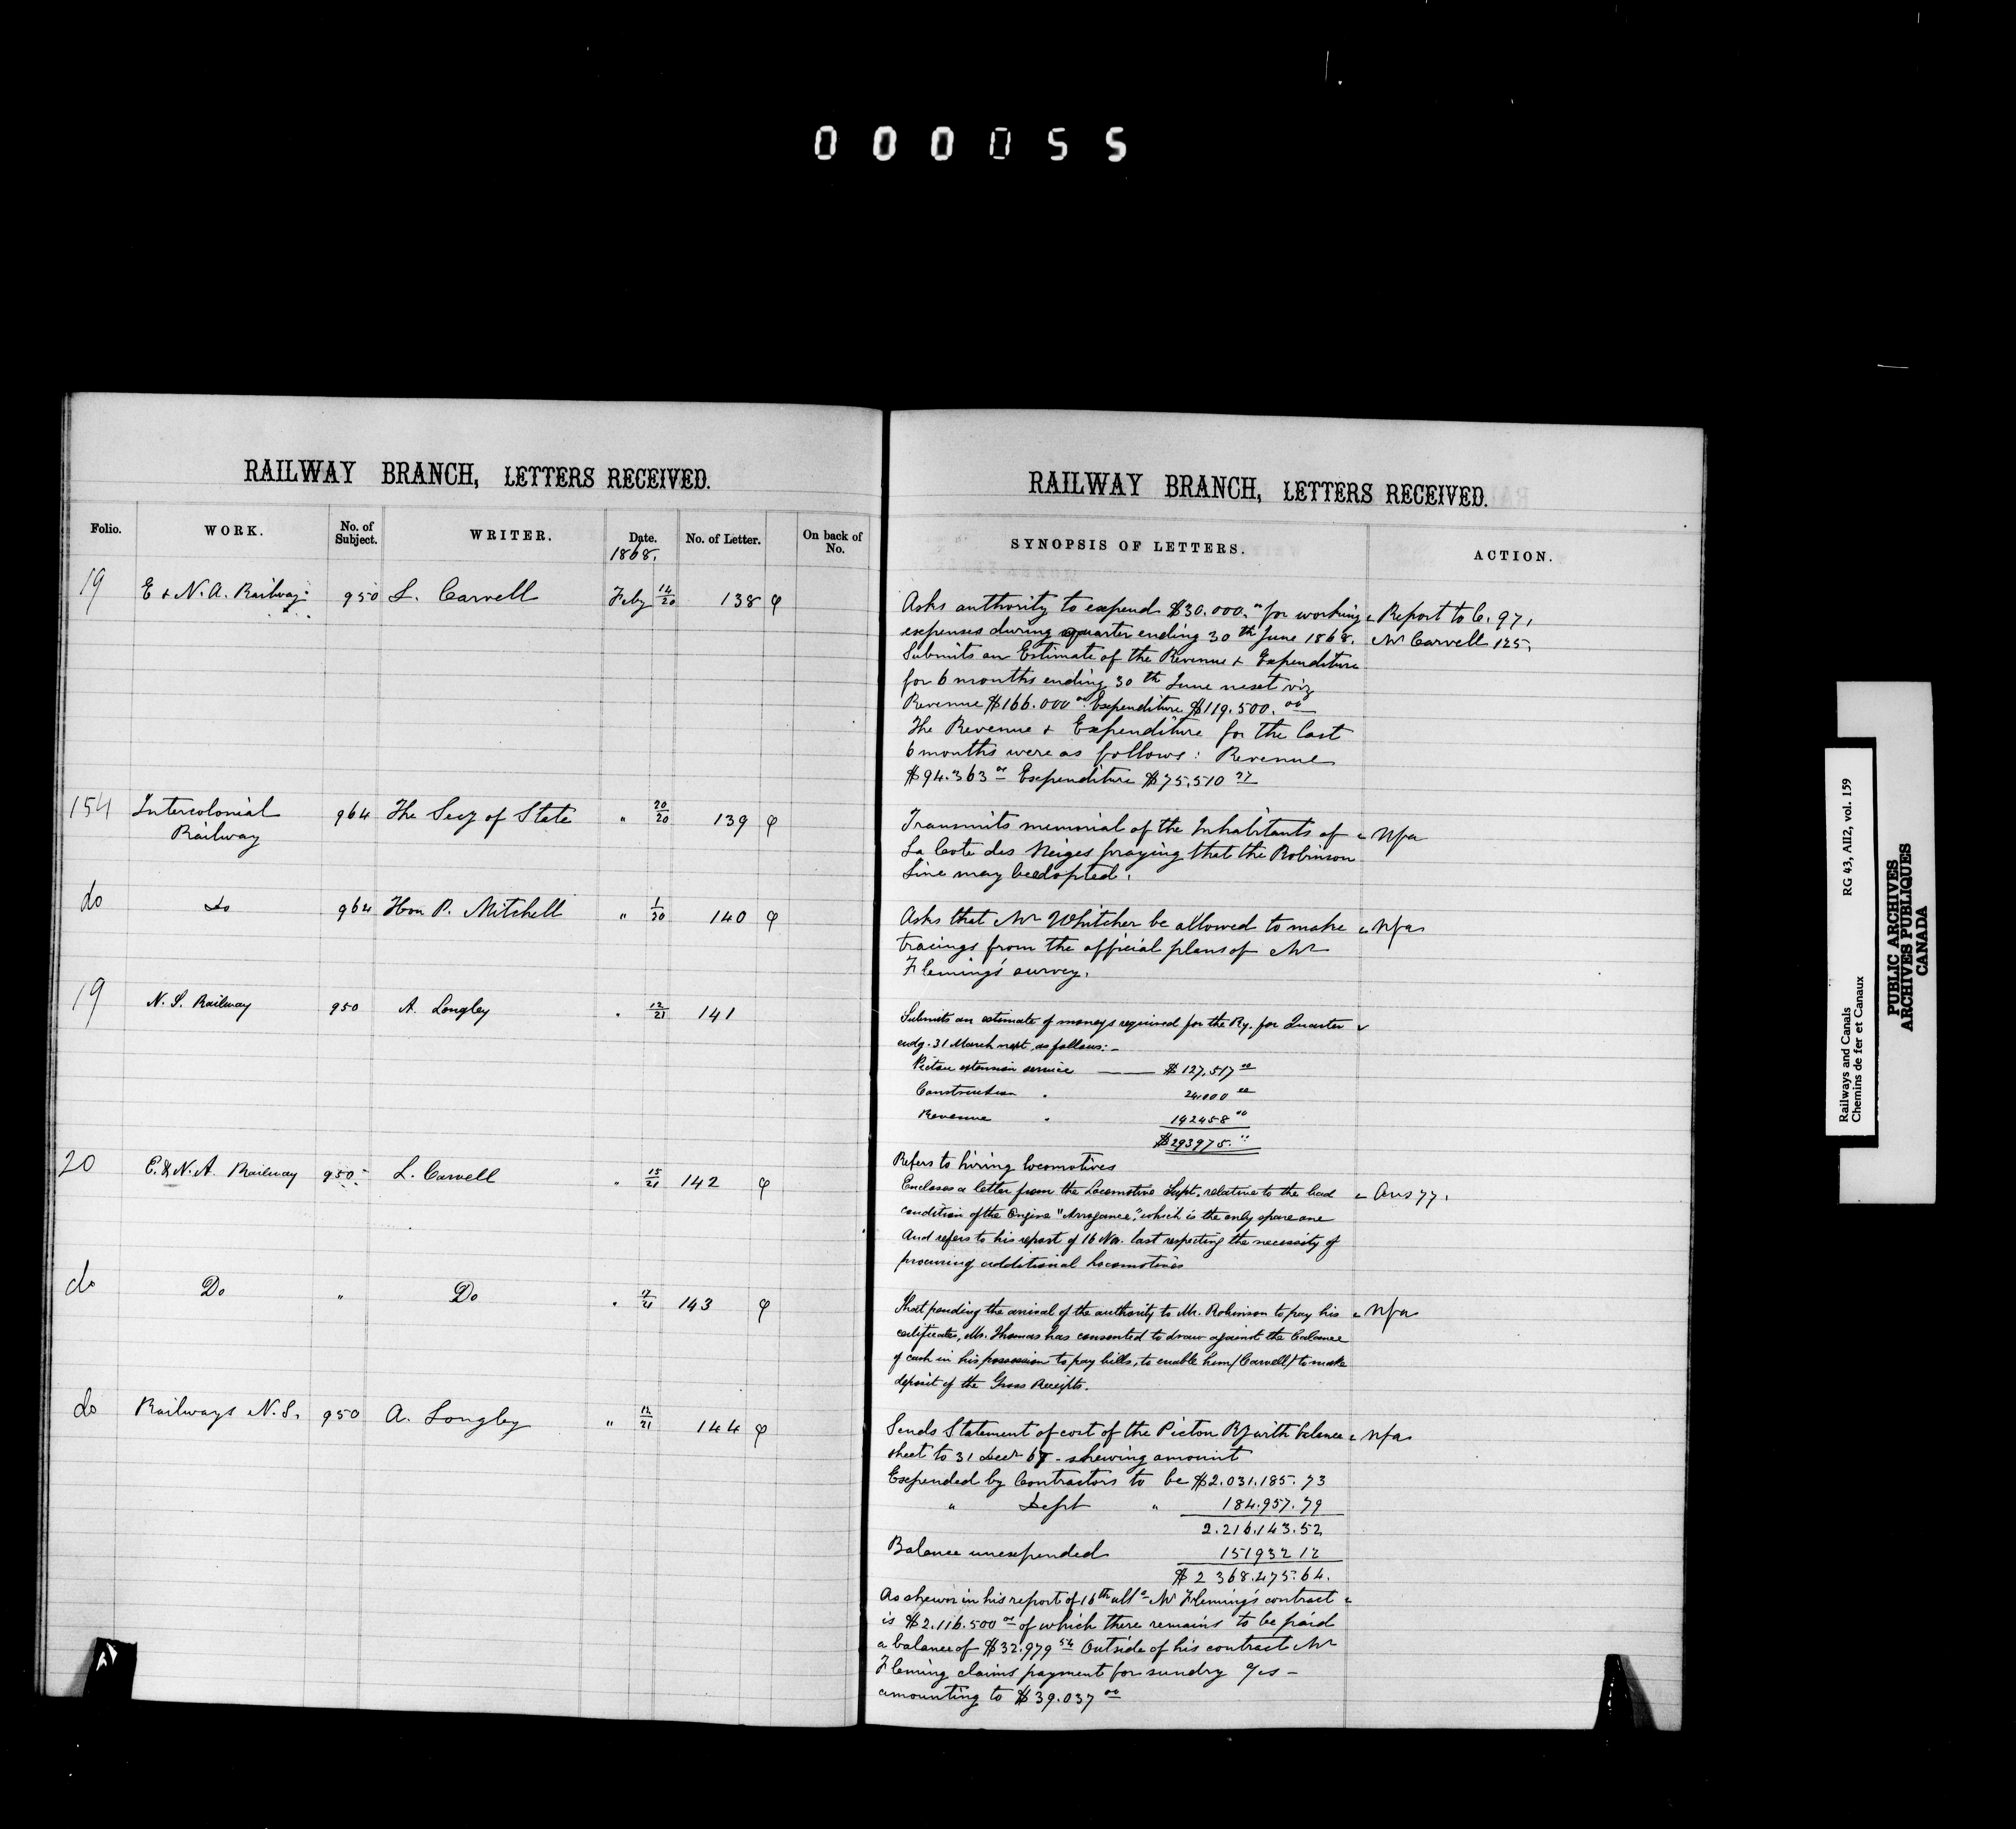 000055
RAILWAY BRANCH, LETTERS RECEIVED.
Folio. WORK. No. of Subject. WRITER. Date. No. of Letter. On back of No.
1868.
19 E & N.A. Railway 950 L. Carvell Feby 14/20 138 φ
154 Intercolonial 964 The Secy of State " 20/20 139 φ
Railway
do do 964 Hon P. Mitchell " 1/20 140 φ
19 N.S. Railway 950 A. Longley " 12/21 141
20 E. & N.A. Railway 950 L. Carvell " 15/21 142 φ
do Do " Do " 143 φ
do Railways N.S. 950 A. Longley " 12/21 144 φ
RAILWAY BRANCH, LETTERS RECEIVED.
SYNOPSIS OF LETTERS. ACTION.
Asks authority to expend $30.000.00 for working Report to C. 97,
expenses during quarter ending 30th June 1868. Mr Carvell 125,
Submits an Estimate of the Revenue & Expenditure
for 6 months ending 30th June next viz
Revenue $166.000 00 Expenditure $119.500.00
The Revenue & Expenditure for the last
6 months were as follows: Revenue
$94.363 Expenditure $75,510
Transmits memorial of the Inhabitants of Nfa
La Cote des Neiges praying that the Robinson
Line may be adopted.
Asks that Mr Whitcher be allowed to make Nfa
tracings from the official plans of Mr
Fleming's survey.
Submits an estimate of moneys required for the Ry. for Quarter
endg. 31 March next, as follows:-
Pictou extension service $127,517 00
Construction " 24.000 00
Revenue " 142458 00
$293975.00
Refers to hiring locomotives
Encloses a letter from the Locomotive Supt. relative to the bad Ans 77.
condition of the Engine "Arrogance," which is the only spare one
And refers to his report of 16 Nov. last respecting the necessity of
procuring additional locomotives
That pending the arrival of the authority to Mr. Robinson to pay his Nfa
certificates, Mr. Thomas has consented to draw against the balance
of cash in his possession to pay bills, to enable him (Carvell) to make
deposit of the Gross Receipts.
Sends Statement of cost of the Pictou Ry with balance Nfa
sheet to 31 Decr 67 - shewing amount
Expended by Contractors to be $2.031.185.73
" Dept " 184.957.79
2.216.143.52
Balance unexpended 151932 12
$2 368.475.64.
As shewn in his report of 16th ulto Mr Fleming's contract
is $2.116.500 00 of which there remains to be paid
a balance of $32.979 54 Outside of his contract Mr
Fleming claims payment for sundry a/cs -
amounting to $39.037 00
Railways and Canals RG 43, AII2, vol. 159
Chemins de fer et Canaux
PUBLIC ARCHIVES
ARCHIVES PUBLIQUES
CANADA